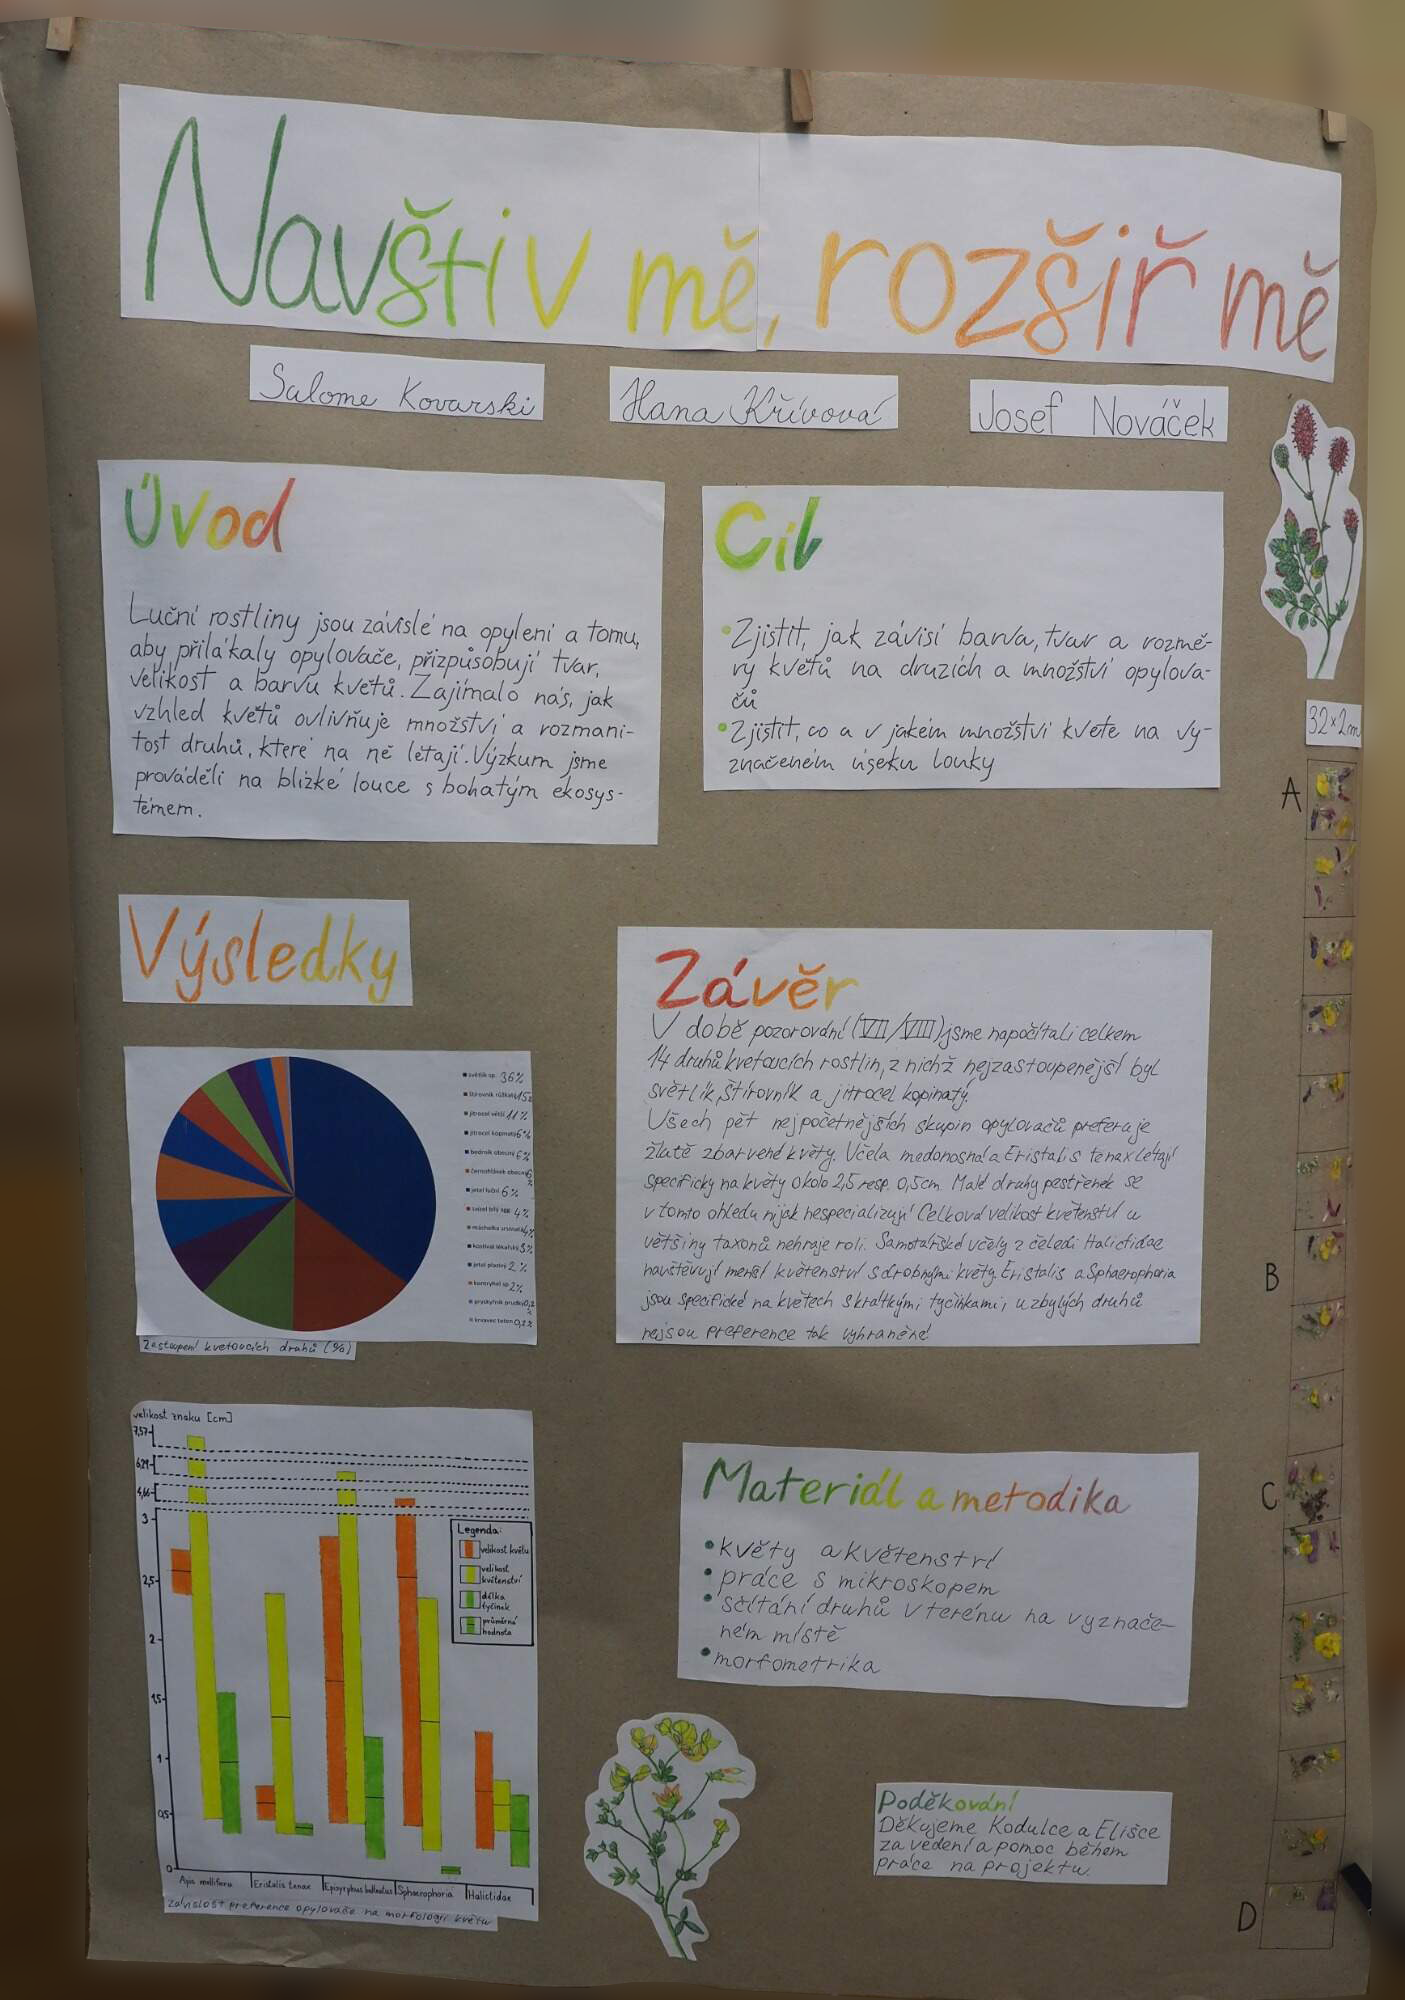 Navštiv mě, rozšiř mě
Salome Kovarski
Hana Křívová
Josef Nováček
Úvod
Luční rostliny jsou závislé na opylení a tomu,
aby přilákaly opylovače, přizpůsobují tvar,
velikost a barvu květů. Zajímalo nás, jak
vzhled květů ovlivňuje množství a rozmani-
tost druhů, které na ně létají. Výzkum jsme
prováděli na blízké louce s bohatým ekosys-
témem.
Cíl
Zjistit, jak závisí barva, tvar a rozmě-
ry květů na druzích a množství opylova-
čů
Zjistit, co a v jakém množství kvete na vy-
značeném úseku louky
32×2m
A
B
C
D
Výsledky
světlík sp. 36%
štírovník růžkatý 15%
jitrocel větší 11%
jitrocel kopinatý 6%
bedrník obecný 6%
černohlávek obecný 6%
jetel luční 6%
svízel bílý agg. 4%
máchelka srstnatá 4%
kostival lékařský 3%
jetel plazivý 2%
kontryhel sp. 2%
pryskyřník prudký 0,2%
krvavec toten 0,2%
Zastoupení kvetoucích druhů (%)
Závěr
V době pozorování (VII/VIII) jsme napočítali celkem
14 druhů kvetoucích rostlin, z nichž nejzastoupenější byl
světlík, štírovník a jitrocel kopinatý.
Všech pět nejpočetnějších skupin opylovačů preferuje
žlutě zbarvené květy. Včela medonosná a Eristalis tenax létají
specificky na květy okolo 2,5 resp. 0,5cm. Malé druhy pestřenek se
v tomto ohledu nijak nespecializují. Celková velikost květenství u
většiny taxonů nehraje roli. Samotářské včely z čeledi Halictidae
navštěvují menší květenství s drobnými květy. Eristalis a Sphaerophoria
jsou specifické na květech s krátkými tyčinkami, u zbylých druhů
nejsou preference tak vyhraněné.
velikost znaku [cm]
7,57
6,29
4,66
3
2,5
2
1,5
1
0,5
0
Legenda:
velikost květu
velikost květenství
délka tyčinek
průměrná hodnota
Apis mellifera
Eristalis tenax
Episyrphus balteatus
Sphaerophoria
Halictidae
závislost preference opylovače na morfologii květu
Materiál a metodika
květy a květenství
práce s mikroskopem
sčítání druhů v terénu na vyznače-
ném místě
morfometrika
Poděkování
Děkujeme Kodulce a Elišce
za vedení a pomoc během
práce na projektu.